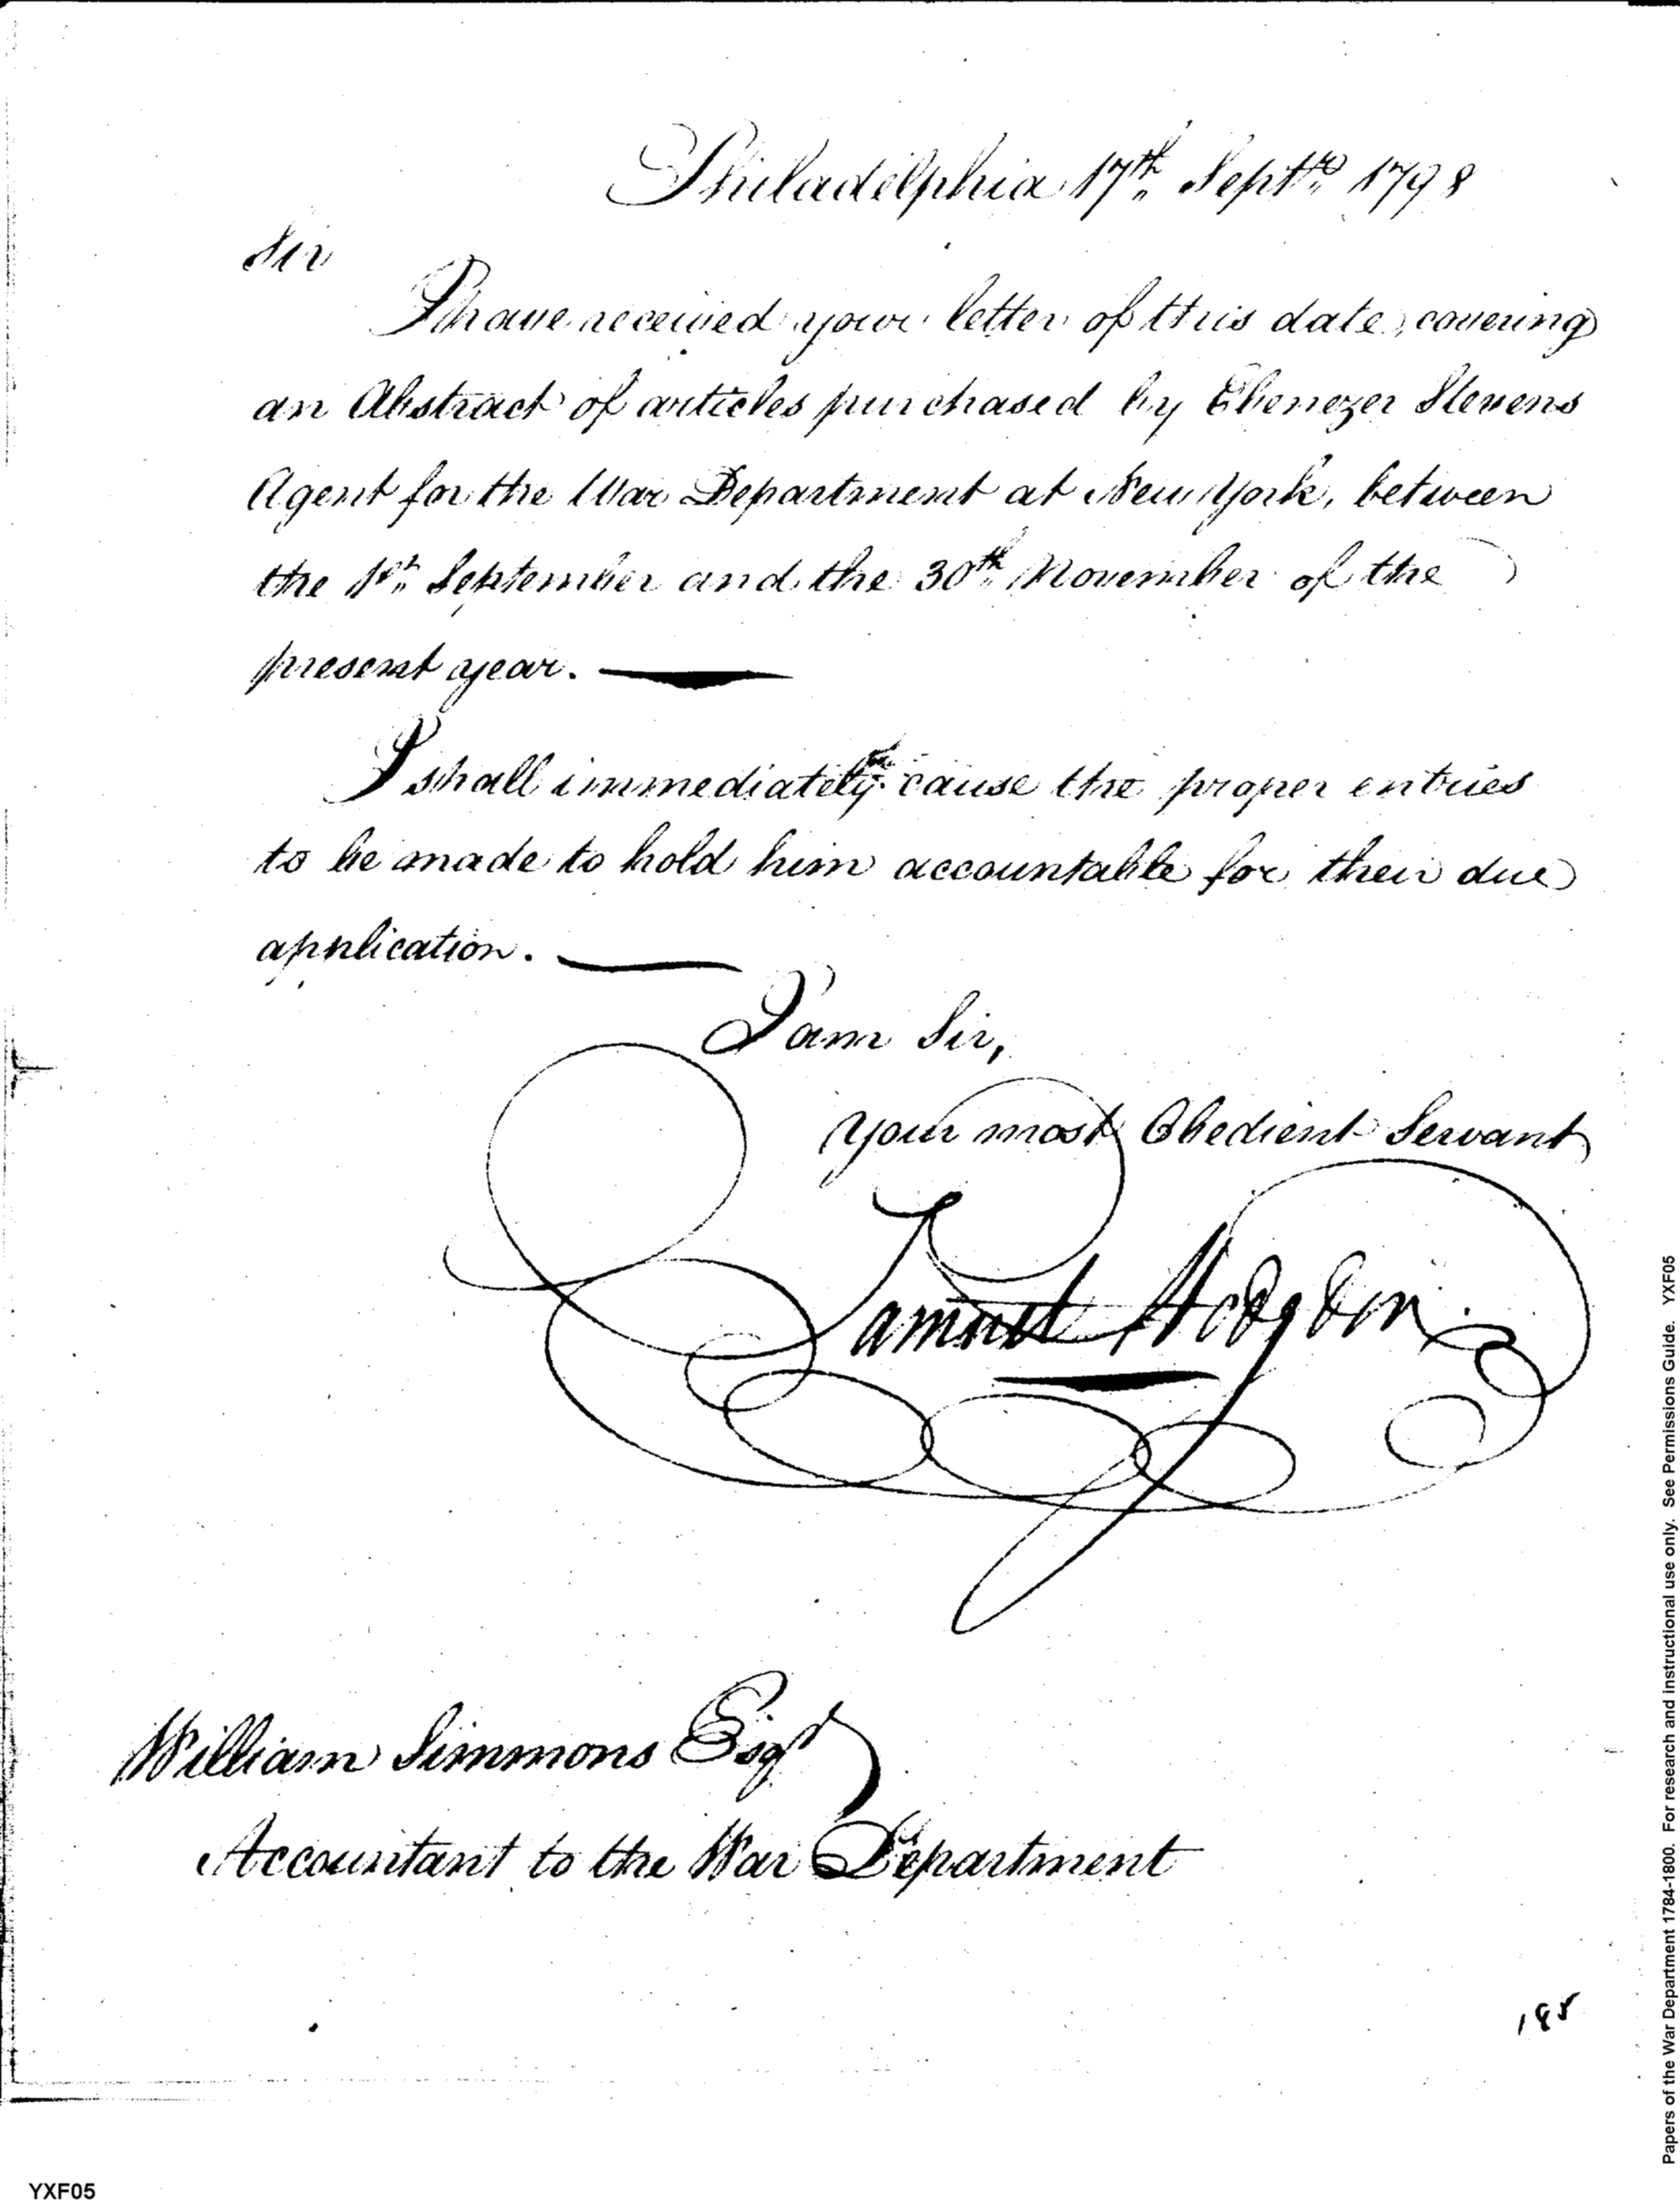 Philadelphia 17th Septr 1798
Sir
I have received your letter of this date, covering
an Abstract of articles purchased by Ebenezer Stevens
Agent for the War Department at New York, between
the 1st September and the 30th November of the
present year.
I shall immediately cause the proper entries
to be made to hold him accountable for their due
application.
I am Sir,
Your most Obedient Servant
Samuel Hodgdon
William Simmons Esqr
Accountant to the War Department
YXF05
Papers of the War Department 1784-1800. For research and instructional use only. See Permissions Guide. YXF05